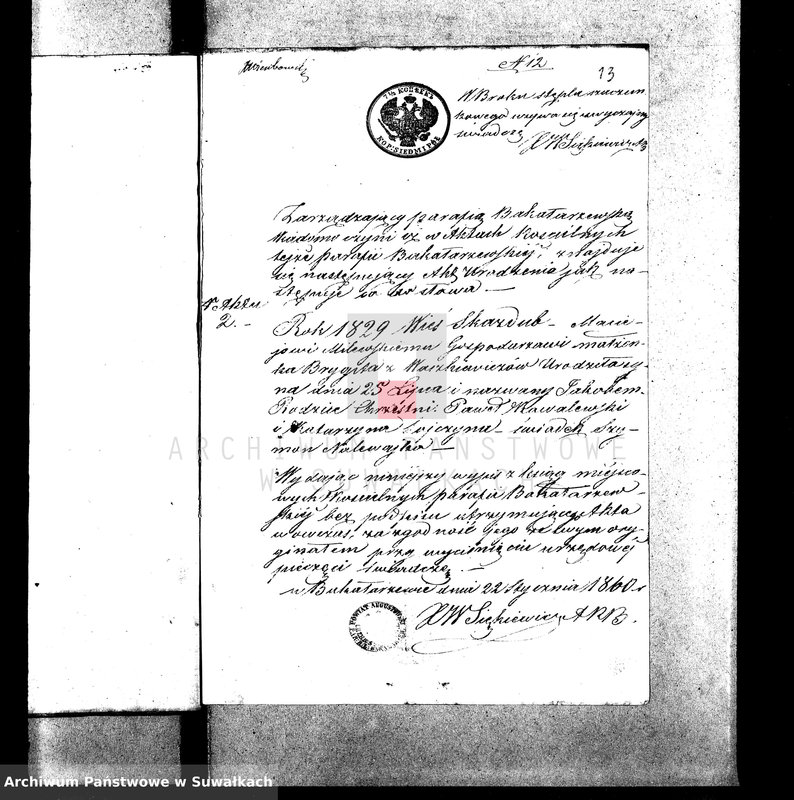 N 12
13
7½ KOPIEEK
KOP: SIEDM I PÓŁ
W Braku stępla
kowego używa się zwyczajny
świadczę
Zarządzający parafią Bakałarzewską
Wiadomo czyni iż w Aktach Kościelnych
tejże parafii Bakałarzewskiéj, znajduje
się następujący Akt Urodzenia jak na-
stępuje co do słowa. —
N Aktu
2. –
Rok 1829 Wieś Skazdub – Macie-
jowi Milewskiemu Gospodarzowi małżon-
ka Brygita z Urodziła sy-
na dnia 25 Lipca i nazwany Jakóbem.
Rodzice Chrzestni: Paweł Kowalewski
i Katarzyna świadek Szy-
mon Nalewajko —
Wydając niniejszy wypis z ksiąg miejsco-
wych Kościelnych parafii Bakałarzew-
skiéj bez podpisu utrzymującego Akta
wówczas, za zgodność jego z owym ory-
ginałem przy wyciśnięciu urzędowéj
pieczęci świadczę —
w Bakałarzewie dnia 22 Stycznia 1860 r
ARCHIWUM PAŃSTWOWE
W SUWAŁKACH
Archiwum Państwowe w Suwałkach